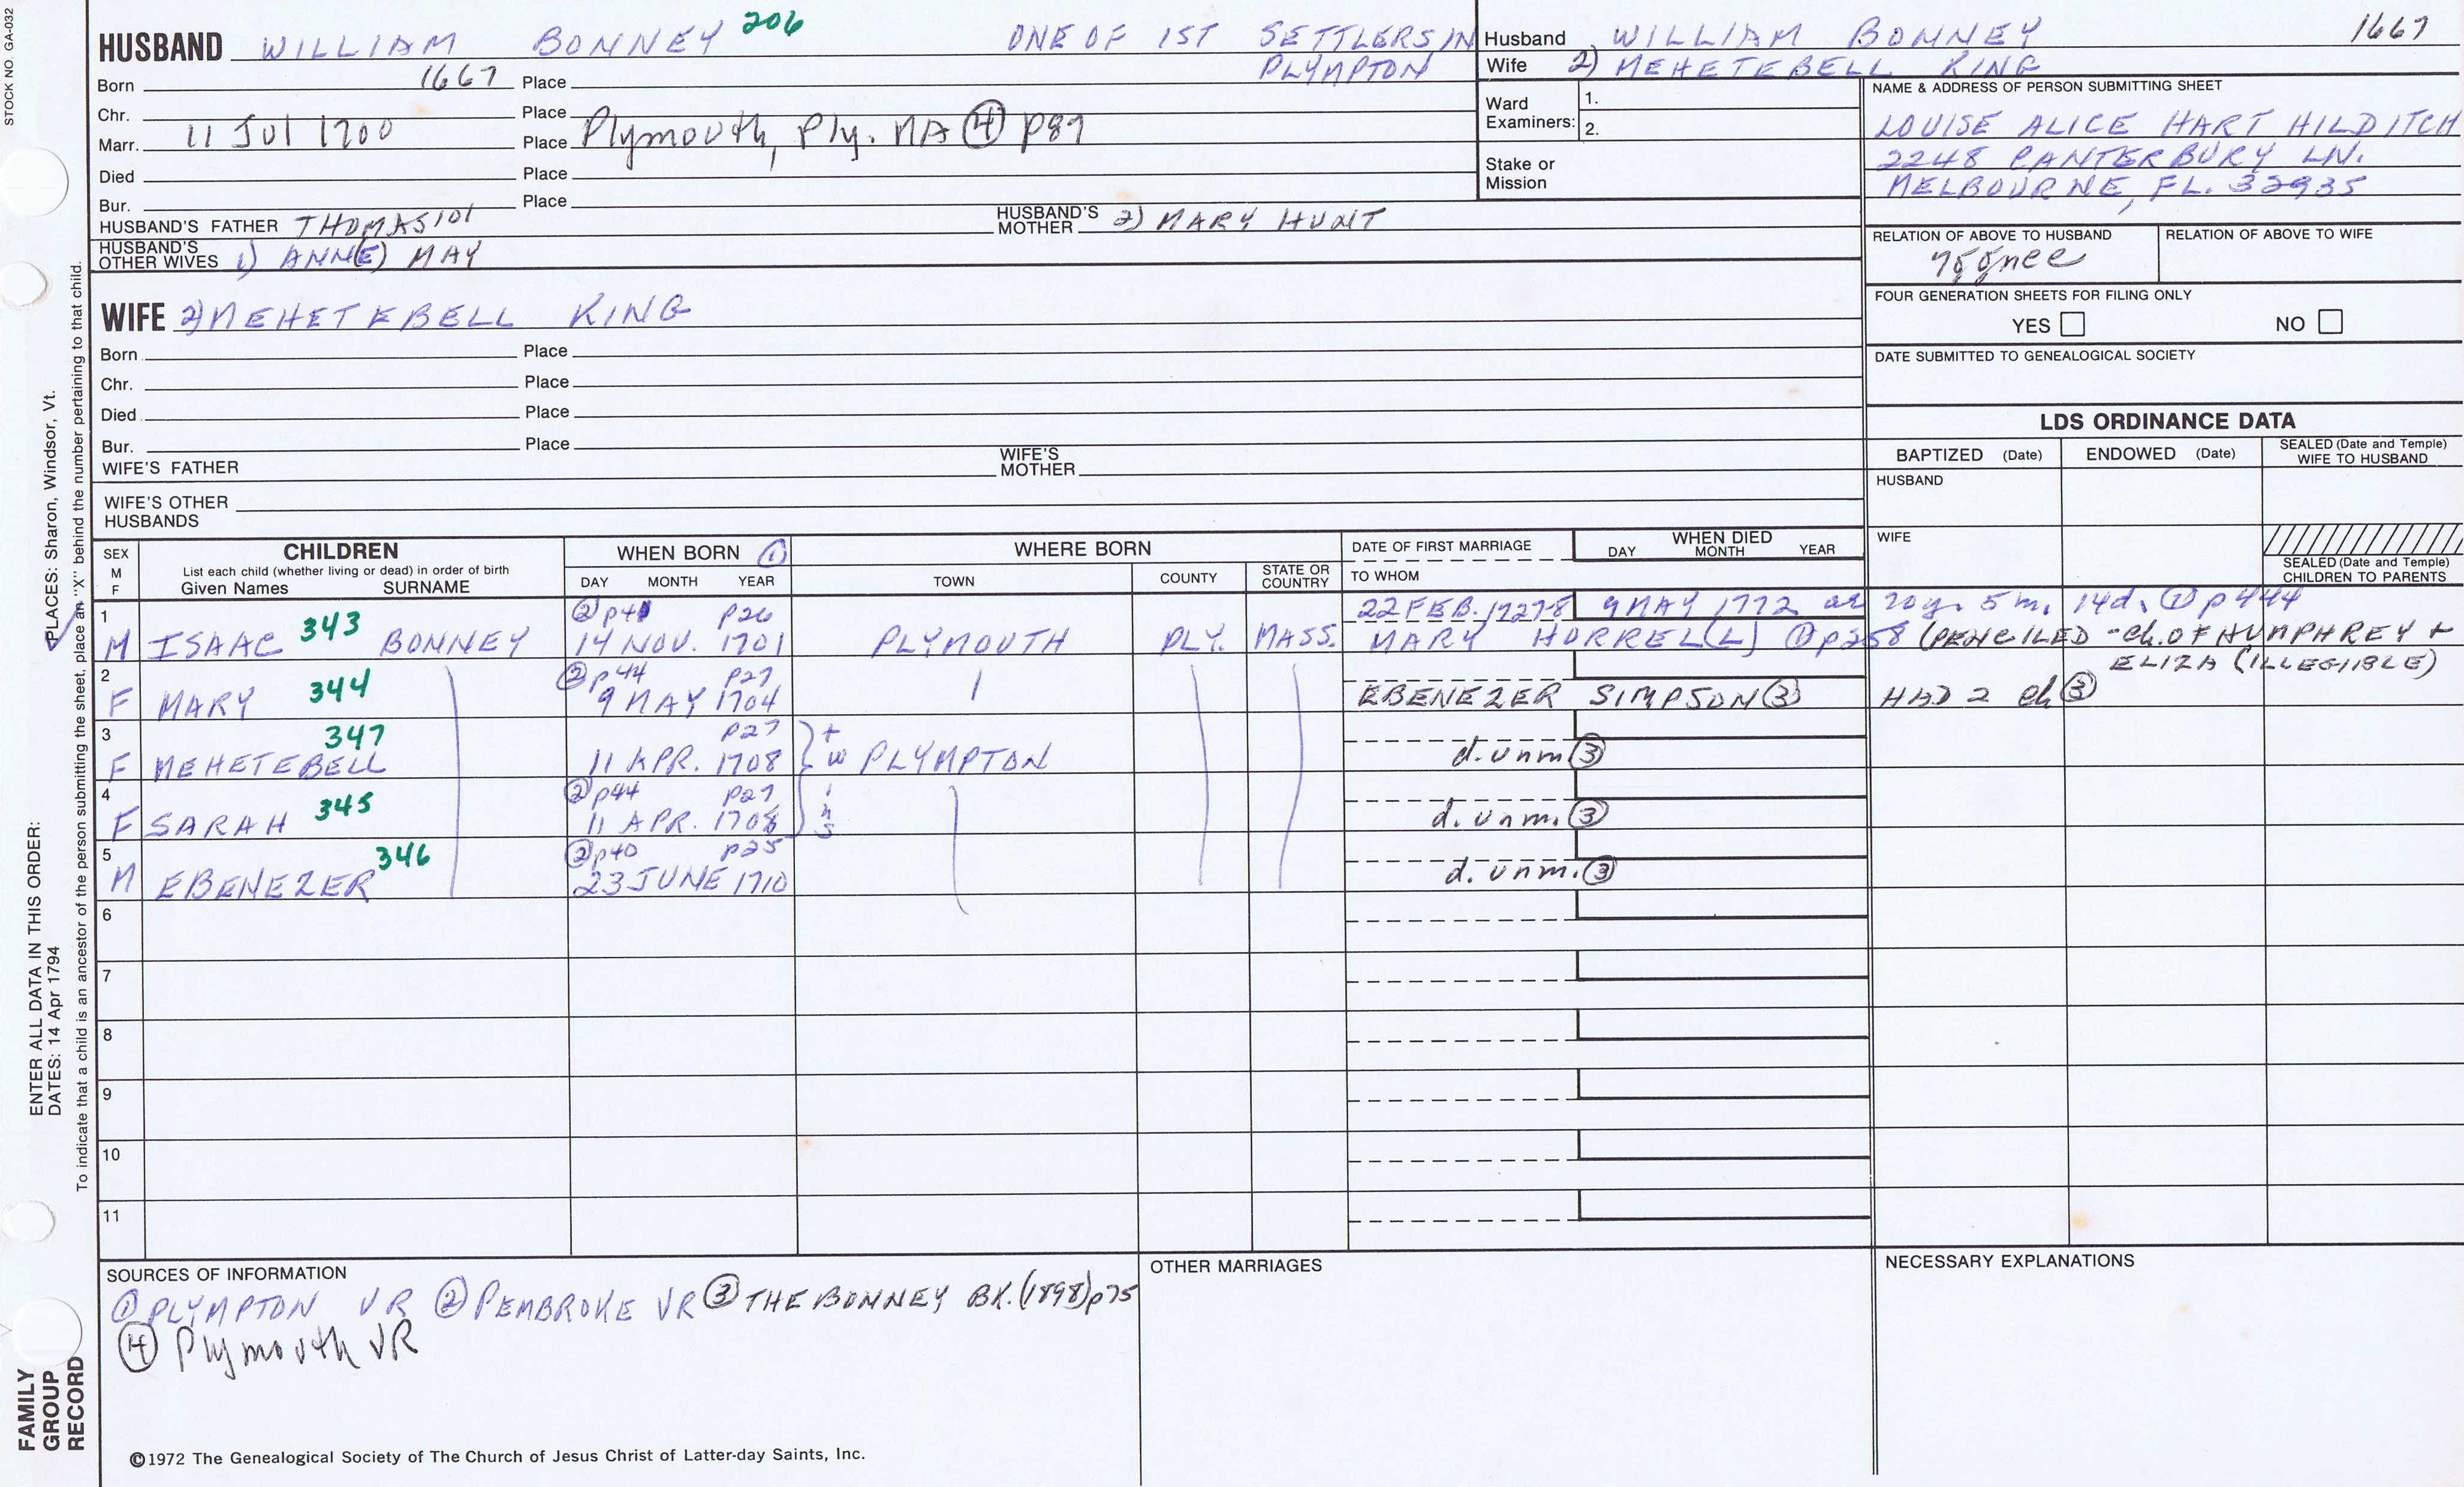 STOCK NO. GA-032
HUSBAND WILLIAM BONNEY 206 ONE OF 1ST SETTLERS IN
PLYMPTON
Born 1667 Place
Chr. Place
Marr. 11 Jul 1700 Place Plymouth, Ply. MA ④ p87
Died Place
Bur. Place
HUSBAND'S FATHER THOMAS 101 HUSBAND'S MOTHER 2) MARY HUNT
HUSBAND'S OTHER WIVES 1) ANN(E) MAY
WIFE 2) MEHETEBELL KING
Born Place
Chr. Place
Died Place
Bur. Place
WIFE'S FATHER WIFE'S MOTHER
WIFE'S OTHER HUSBANDS
Husband WILLIAM BONNEY 1667
Wife 2) MEHETEBELL KING
Ward Examiners: 1.
2.
Stake or Mission
NAME & ADDRESS OF PERSON SUBMITTING SHEET
LOUISE ALICE HART HILDITCH
2248 CANTERBURY LN.
MELBOURNE, FL. 32935
RELATION OF ABOVE TO HUSBAND RELATION OF ABOVE TO WIFE
FOUR GENERATION SHEETS FOR FILING ONLY
YES NO
DATE SUBMITTED TO GENEALOGICAL SOCIETY
LDS ORDINANCE DATA
BAPTIZED (Date) ENDOWED (Date) SEALED (Date and Temple) WIFE TO HUSBAND
HUSBAND
WIFE
SEALED (Date and Temple) CHILDREN TO PARENTS
SEX M F
CHILDREN
List each child (whether living or dead) in order of birth
Given Names SURNAME
WHEN BORN ①
DAY MONTH YEAR
WHERE BORN
TOWN COUNTY STATE OR COUNTRY
DATE OF FIRST MARRIAGE
TO WHOM
WHEN DIED
DAY MONTH YEAR
1 343 ② p41 p26 22 FEB. 1727-8 9 MAY 1772 ae 70y. 5m. 14d. ① p444
M ISAAC BONNEY 14 NOV. 1701 PLYMOUTH PLY. MASS. MARY HORREL(L) ① p258 (PENCILED - Ch. OF HUMPHREY +
ELIZA (ILLEGIBLE)
2 344 ② p44 p27
F MARY 9 MAY 1704 EBENEZER SIMPSON ③ HAD 2 Ch ③
3 347 p27
F MEHETEBELL 11 APR. 1708 twins PLYMPTON d. unm ③
4 345 ② p44 p27
F SARAH 11 APR. 1708 d. unm. ③
5 346 ② p40 p25
M EBENEZER 23 JUNE 1710 d. unm. ③
6
7
8
9
10
11
SOURCES OF INFORMATION
① PLYMPTON VR ② PEMBROKE VR ③ THE BONNEY BK. (1898) p75
④ Plymouth VR
OTHER MARRIAGES
NECESSARY EXPLANATIONS
©1972 The Genealogical Society of The Church of Jesus Christ of Latter-day Saints, Inc.
FAMILY GROUP RECORD
ENTER ALL DATA IN THIS ORDER:
DATES: 14 Apr 1794
PLACES: Sharon, Windsor, Vt.
To indicate that a child is an ancestor of the person submitting the sheet, place an "X" behind the number pertaining to that child.